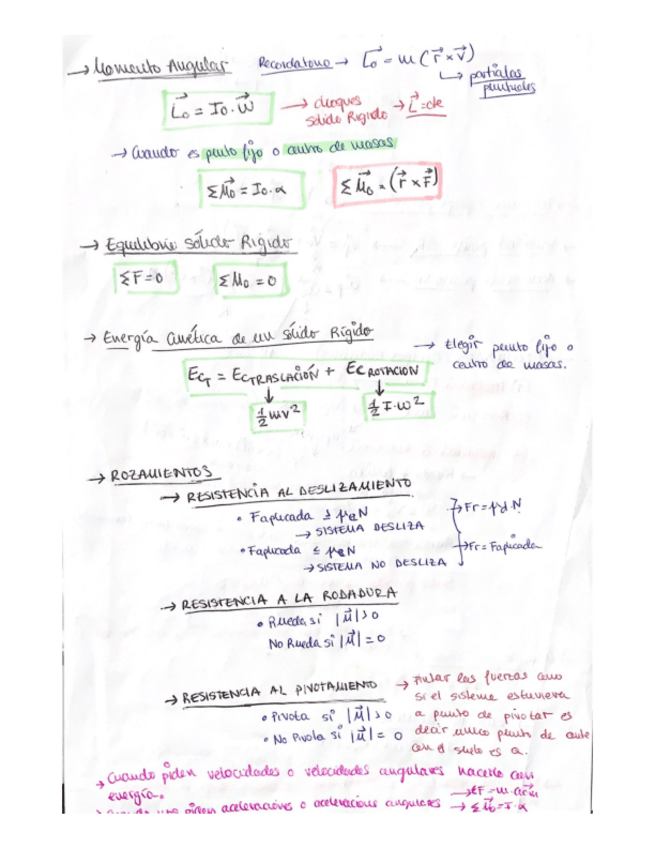 → Momento Angular Recordatorio → L⃗o = m (r⃗ x v⃗)
↳ partículas puntuales
L⃗o = Io · w⃗ → choques sólido Rígido → L⃗ = cte
→ Cuando es punto fijo o centro de masas
ΣM⃗o = Io·α ΣM⃗o = (r⃗ x F⃗)
→ Equilibrio sólido Rígido
ΣF=0 ΣMo = 0
→ Energía Cinética de un sólido Rígido
→ Elegir punto fijo o centro de masas.
EcT = EcTRASLACIÓN + EcROTACIÓN
↓ ↓
½mv² ½ I·w²
→ ROZAMIENTOS
→ RESISTENCIA AL DESLIZAMIENTO
• Faplicada ≥ μeN
→ SISTEMA DESLIZA
→ Fr = μd·N
• Faplicada ≤ μeN
→ SISTEMA NO DESLIZA
→ Fr = Faplicada
→ RESISTENCIA A LA RODADURA
• Rueda si |M⃗|>0
No Rueda si |M⃗|=0
→ RESISTENCIA AL PIVOTAMIENTO
• Pivota si |M⃗|>0
• No Pivota si |M⃗| = 0
→ Pintar las fuerzas como
si el sistema estuviera
a punto de pivotar es
decir único punto de
con el suelo es a.
→ Cuando piden velocidades o velocidades angulares hacerlo con
energía.
→ ΣF = m·acm
piden aceleraciones o aceleraciones angulares → ΣM⃗o = I·α